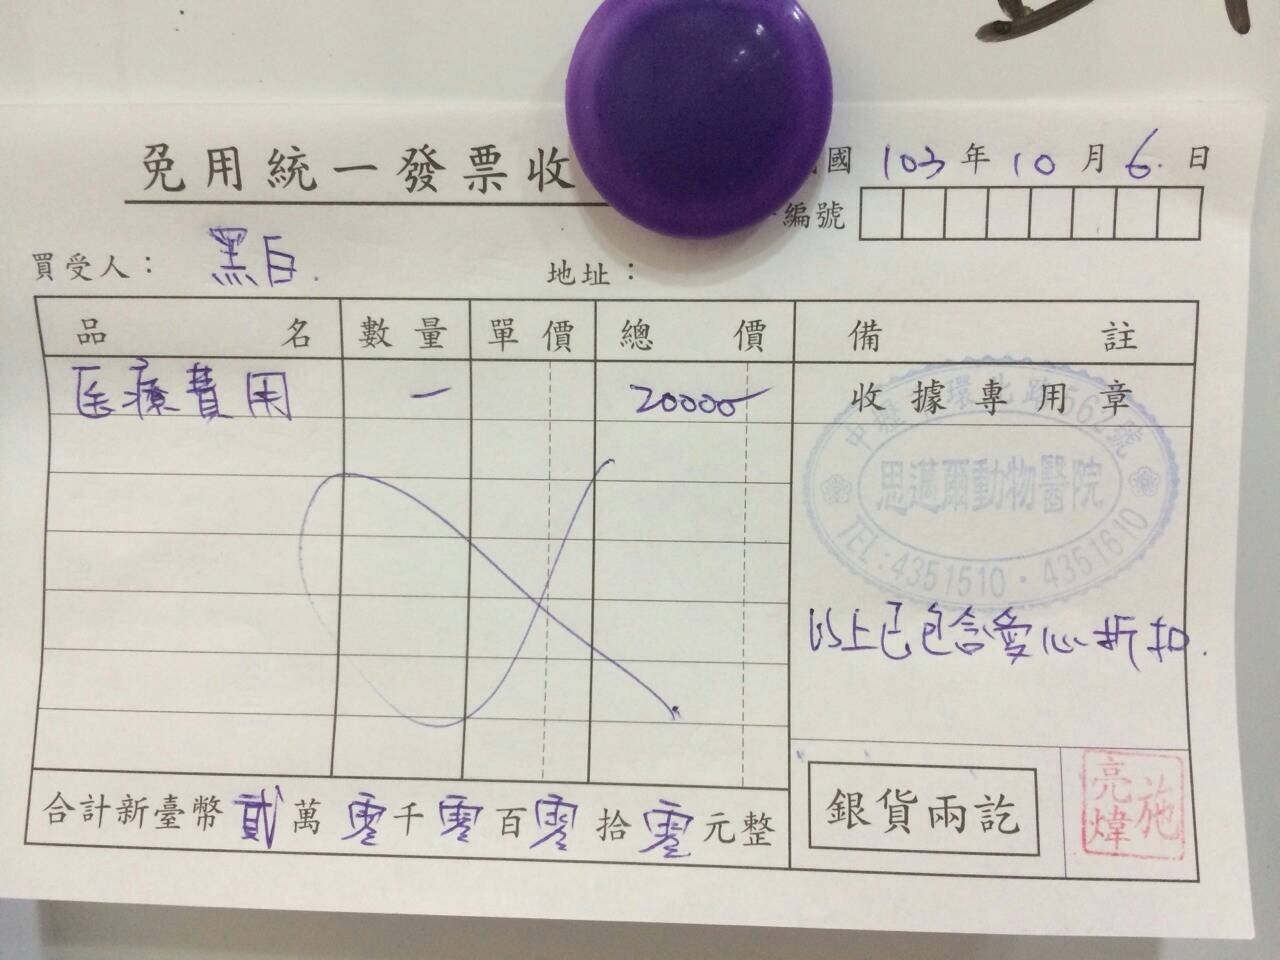 免用統一發票收
國 103 年 10 月 6 日
編號
買受人： 黑白.
地址：
品名 數量 單價 總價 備註
医療費用 一 20000 收據專用章
中壢 環北路562號
思邁爾動物醫院
TEL:4351510·4351610
以上已包含愛心折扣.
合計新臺幣貳萬零千零百零拾零元整
銀貨兩訖
施亮煒